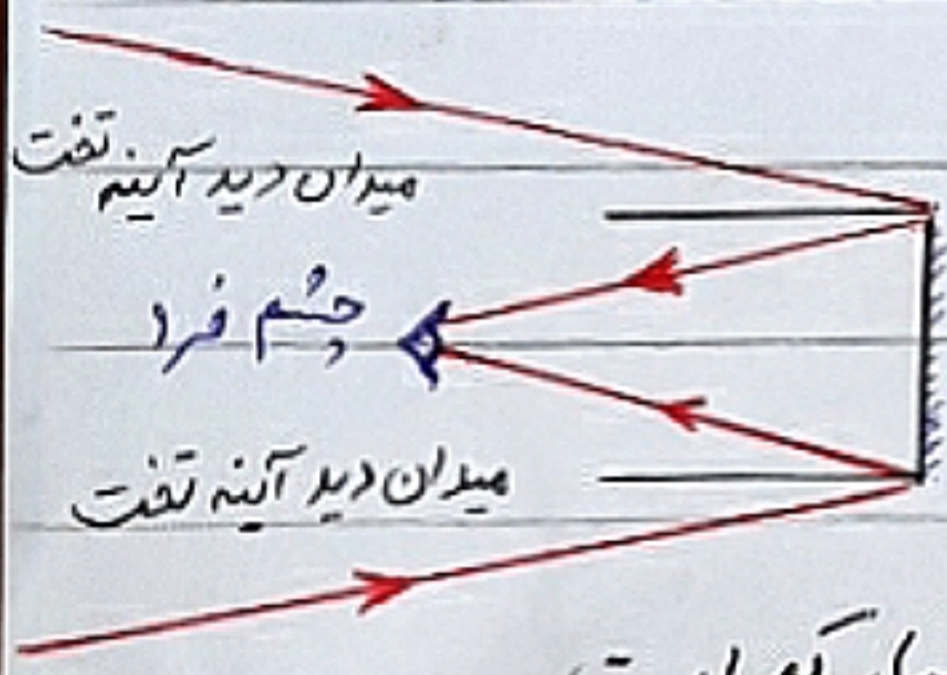 میدان دید آینه تخت
چشم فرد
میدان دید آینه تخت